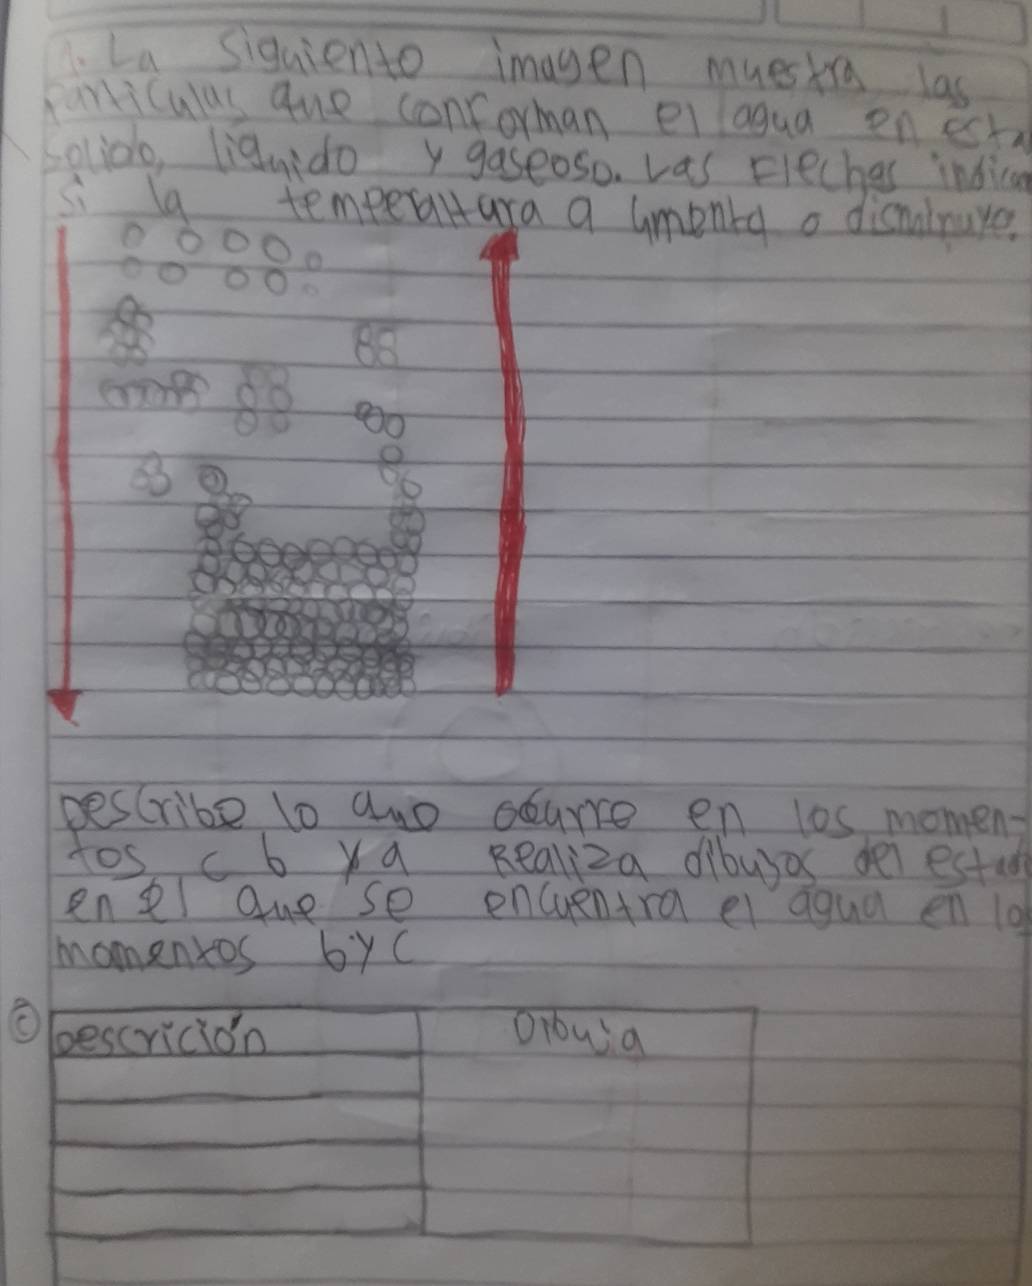 1. La siguiento imagen muestra las
particulas que conforman el agua en esta
solido, liquido y gaseoso. Las Flechas indican
si la temperattura a umenta o disminuye.
Describe lo quo ocurre en los momen-
tos c b y a Realiza dibujos del estad
en el que se encuentra el agua en los
momentos b y c
c Descrición Dibuja